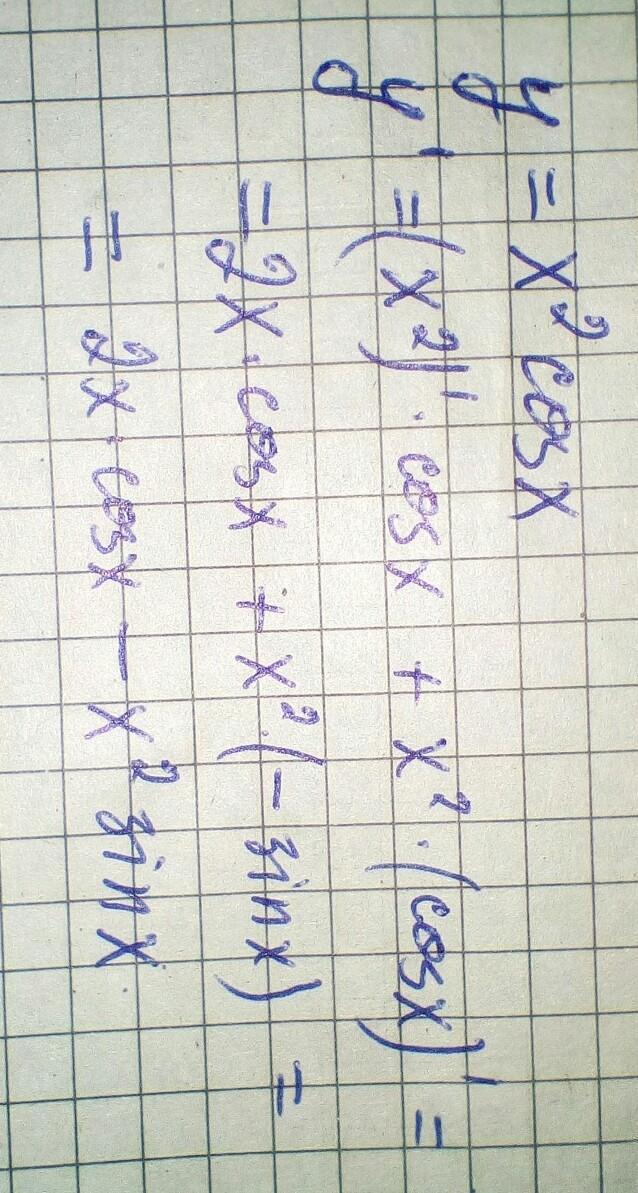 y = x² cos x
y' = (x²)' · cos x + x² · (cos x)' =
= 2x · cos x + x² · (− sin x) =
= 2x · cos x − x² sin x